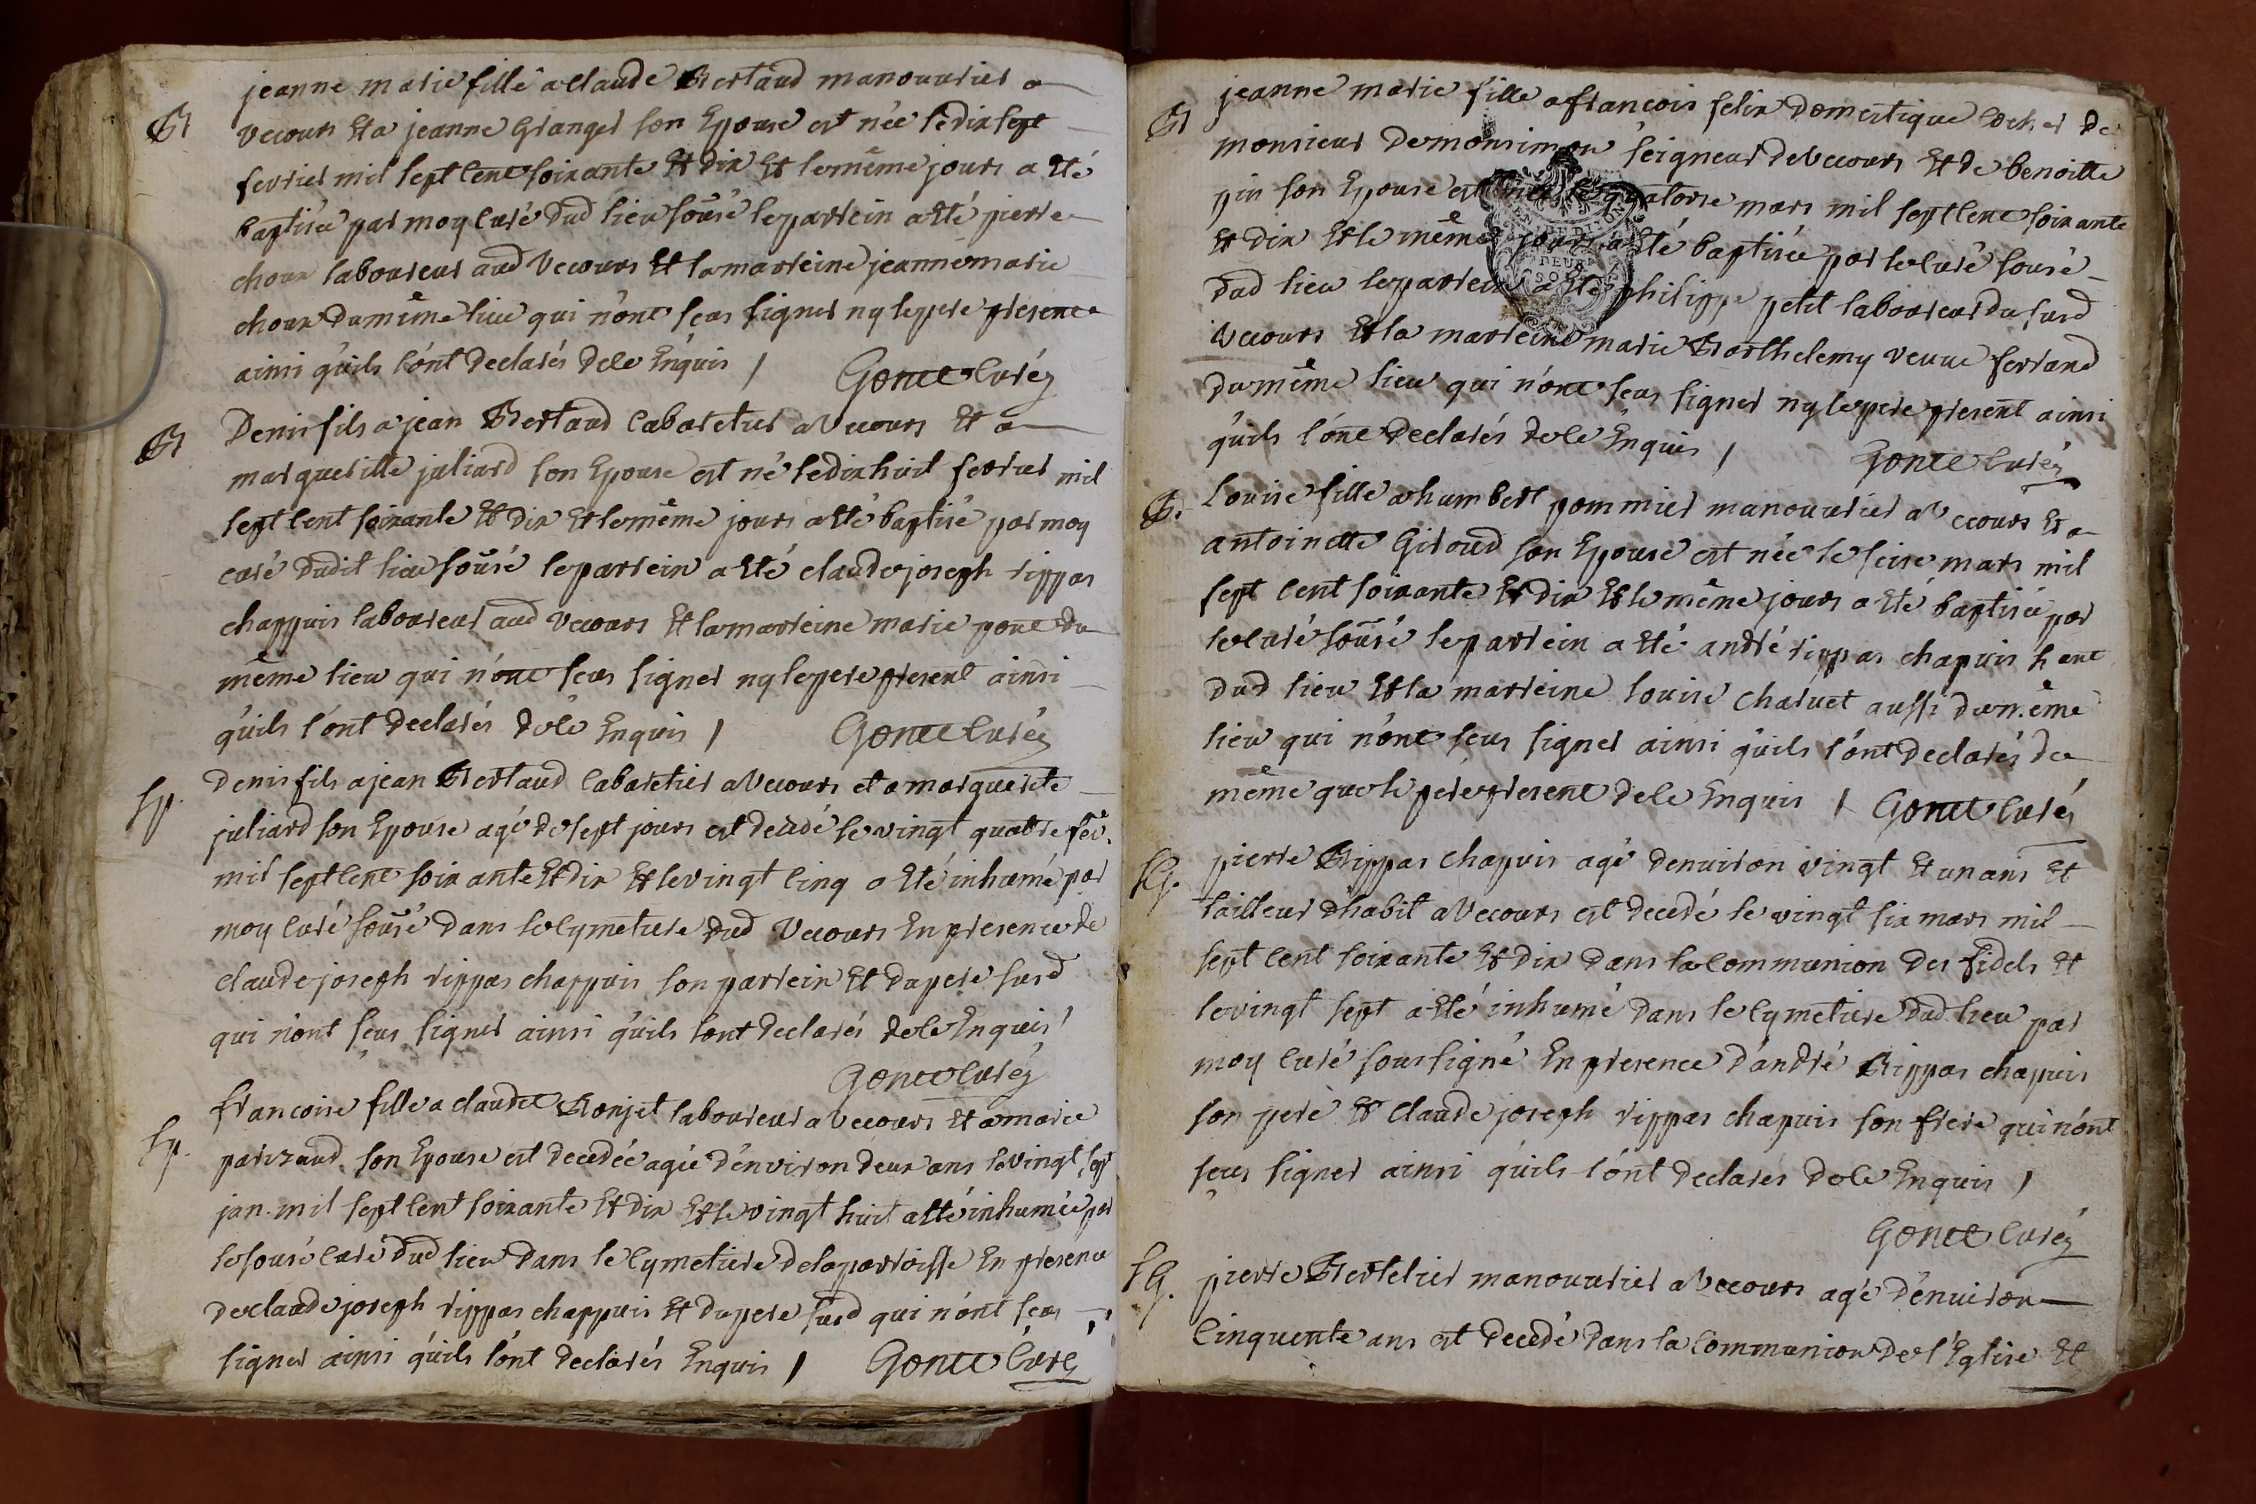 jeanne marie fille a claude Bertaud manouvrier a
Bt
Vecours et a jeanne Granger son Epouse est née le dix sept
fevrier mil sept cent soixante et dix et le même jours a été
baptisée par moy curé dud lieu sousé le parrein a été pierre
choux laboureur aud Vecours et la marreine jeanne marie
choux du même lieu qui n'ont sçeus signer ny le pere present
ainsi qu'ils l'ont declarés de ce Enquis / Gonet curéz
Bt
Denis fils a jean Bertaud cabaretier a Vecours et a
marqueritte juliard son Epouse est né le dix huit fevrier mil
sept cent soixante et dix et le même jours a été baptisé par moy
curé dudit lieu sousé le parrein a été claude joseph rippas
chappuis laboureur aud Vecours et la marreine marie pont du
même lieu qui n'ont sçeus signer ny le pere present ainsi
qu'ils l'ont declarés de ce Enquis / Gonet curéz
Sp.
Denis fils a jean Bertaud cabaretier a Vecours et a marquerite
juliard son Epouse agé de sept jours est decedé le vingt quatre fev.
mil sept cent soixante et dix et le vingt cinq a été inhumé par
moy curé sousé dans le cymetiere dud Vecours En presence de
claude joseph rippas chappuis son parrein et du pere susd
qui n'ont sçeus signer ainsi qu'ils l'ont declarés de ce Enquis /
Gonet curéz
francoise fille a claude Bonjet laboureur a Vecours et a marie
Sp.
parizaud son Epouse est decedée agée d'environ deux ans le vingt sept
jan. mil sept cent soixante et dix et le vingt huit a été inhumée par
le sousé curé dud lieu dans le cymetiere de la parroisse En presence
de claude joseph rippas chappuis et du pere susd qui n'ont sçeus
signer ainsi qu'ils l'ont declarés Enquis / Gonet curé
jeanne marie fille a françois felix domestique cocher de
Bt
monsieur de monsimon seigneur de Vecours et de benoitte
pin son Epouse est née le quatorze mars mil sept cent soixante
et dix et le même jours a été baptisée par le curé sousé
dud lieu le parrein a été philippe petit laboureur du susd
Vecours et la marreine marie Barthelemy veuve ferrand
du même lieu qui n'ont sçeus signer ny le pere present ainsi
qu'ils l'ont declarés de ce Enquis / Gonet curéz
B.
Louise fille a humbert pommier manouvrier a Vecours et a
antoinette Giroud son Epouse est née le seize mars mil
sept cent soixante et dix et le même jours a été baptisée par
le curé sousé le parrein a été andré rippas chapuis
dud lieu et la marreine louise Charvet aussi du même
lieu qui n'ont sçeus signer ainsi qu'ils l'ont declarés de
même que le pere present de ce Enquis / Gonet curéz
SG.
pierre Rippas chapuis agé d'environ vingt et un ans et
tailleur d'habit a Vecours est decedé le vingt six mars mil
sept cent soixante et dix dans la communion des fidels et
le vingt sept a été inhumé dans le cymetiere dud lieu par
moy curé soussigné En presence d'andré Rippas chapuis
son pere et claude joseph rippas chapuis son frere qui n'ont
sçeus signer ainsi qu'ils l'ont declarés de ce Enquis /
Gonet curéz
SG.
pierre Bertelier manouvrier a Vecours agé d'environ
cinquente ans est decedé dans la communion de l'Eglise et